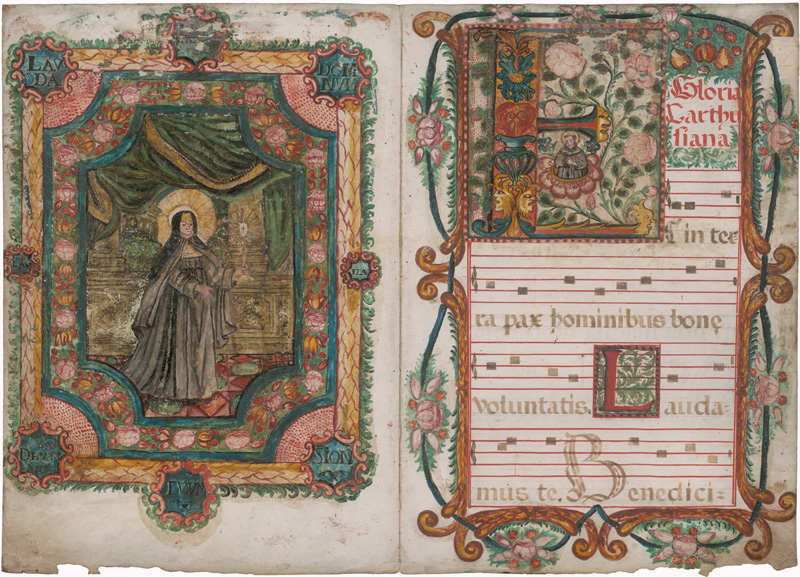 LAV
DA
DOMI
NVM
LAV
DA
SION
TVVM
Gloria
Carthu
siana
Et in ter=
ra pax hominibus bonę
voluntatis. Lauda=
mus te. Benedici=